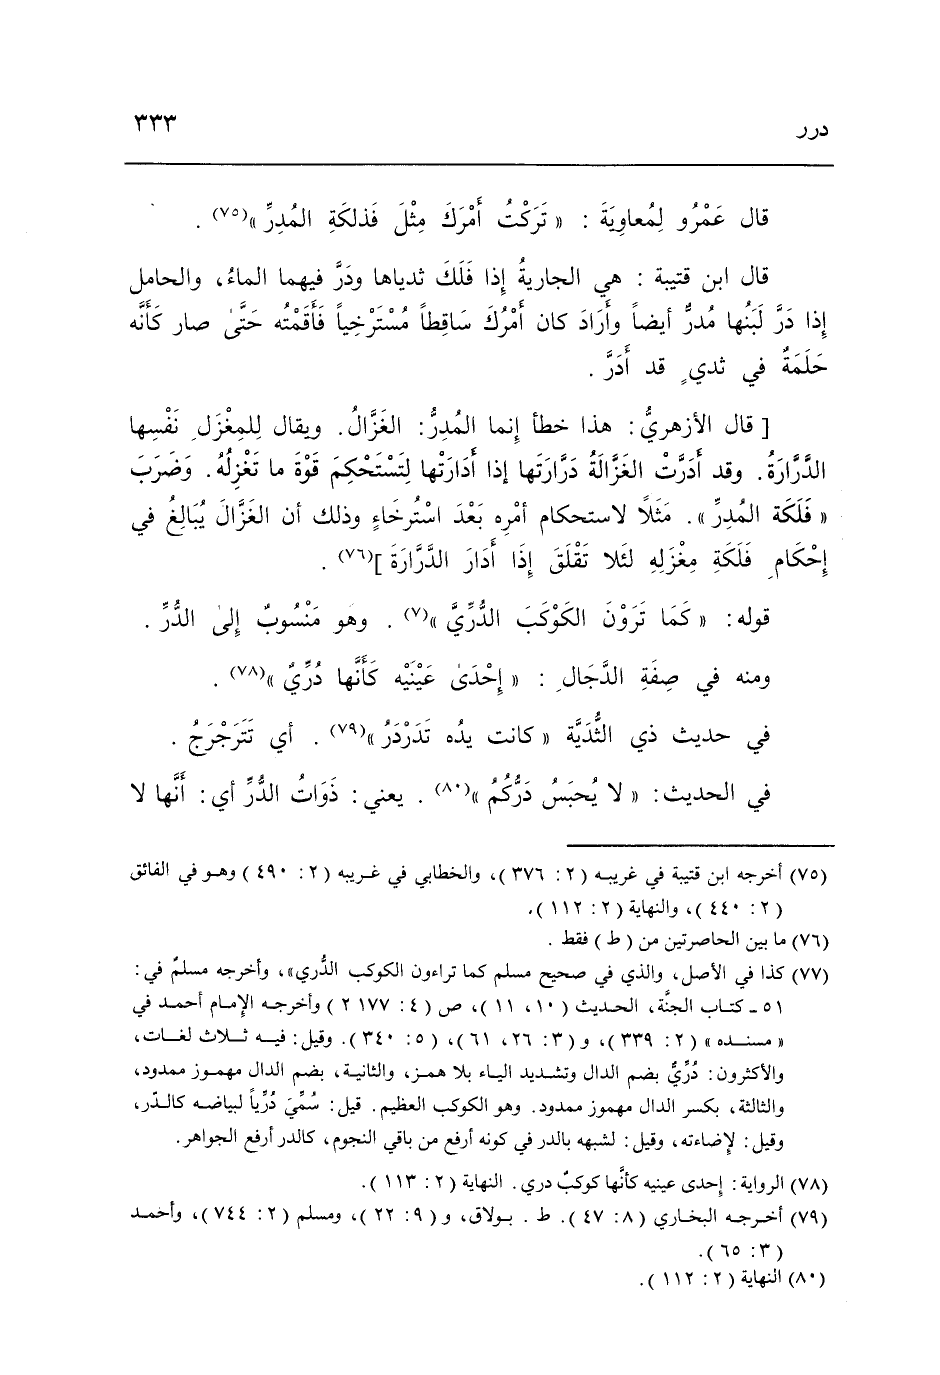 درر
٣٣٣
قال عَمْرُو لِمُعاوِيَةَ : « تَرَكْتُ أَمْرَكَ مِثْلَ فَذلكَةِ المُدِرِّ »(٧٥) .
قال ابن قتيبة : هي الجاريةُ إِذا فَلَكَ ثدياها ودَرَّ فيهما الماءُ، والحامل
إِذا دَرَّ لَبَنُها مُدرٌّ أيضاً وأَرَادَ كان أَمْرُكَ سَاقِطاً مُسْتَرْخِياً فَأَقَمْتُه حَتَّىٰ صار كَأَنَّه
حَلَمَةٌ في ثدي قد أَدَرَّ .
[ قال الأزهريُّ: هذا خطأ إنما المُدِرُّ: الغَزَّالُ. ويقال لِلمِغْزَلِ نَفْسِها
الدَّرَّارَةُ. وقد أَدَرَّتْ الغَزَّالَةُ دَرَّارَتَها إذا أَدَارَتْها لِتَسْتَحْكِمَ قوْةَ ما تَغْزِلُه. وَضَرَبَ
« فَلَكَة المُدِرِّ ». مَثَلًا لاستحكام أمْرِه بَعْدَ اسْتُرخَاءٍ وذلك أن الغَزَّالَ يُبَالِغُ في
إِحْكَامِ فَلَكَةِ مِغْزَلِهِ لئَلا تَقْلَقَ إِذَا أَدَارَ الدَّرَّارَةَ ](٧٦) .
قوله: « كَمَا تَرَوْنَ الكَوْكَبَ الدُّرِّيَّ »(٧) . وهو مَنْسُوبٌ إِلىٰ الدُّرِّ .
ومنه في صِفَةِ الدَّجَالِ : « إِحْدَىٰ عَيْنَيْه كَأَنَّها دُرِّيٌ »(٧٨) .
في حديث ذي الثُّدَيَّة « كانت يدُه تَدَرْدَرُ »(٧٩) . أي تَتَرَجْرَجُ .
في الحديث: « لا يُحبَسُ دَرُّكُمُ »(٨٠) . يعني: ذَوَاتُ الدُّرِّ أي: أَنَّها لا
(٧٥) أخرجه ابن قتيبة في غريبه ( ٢: ٣٧٦ )، والخطابي في غريبه ( ٢: ٤٩٠ ) وهو في الفائق
( ٢: ٤٤٠ )، والنهاية ( ٢: ١١٢ ).
(٧٦) ما بين الحاصرتين من ( ط ) فقط .
(٧٧) كذا في الأصل، والذي في صحيح مسلم كما تراءون الكوكب الدُّري»، وأخرجه مسلمٌ في:
٥١ ـ كتاب الجنَّة، الحديث ( ١٠، ١١ )، ص ( ٤: ٢١٧٧ ) وأخرجه الإمام أحمد في
« مسنده » ( ٢: ٣٣٩ )، و ( ٣: ٢٦، ٦١ )، ( ٥: ٣٤٠ ). وقيل: فيه ثلاث لغات،
والأكثرون: دُرِّيٌّ بضم الدال وتشديد الياء بلا همز، والثانية، بضم الدال مهموز ممدود،
والثالثة، بكسر الدال مهموز ممدود. وهو الكوكب العظيم. قيل: سُمِّيَ دُرِّياً لبياضه كالدّر،
وقيل: لإضاءته، وقيل: لشبهه بالدر في كونه أرفع من باقي النجوم، كالدر أرفع الجواهر.
(٧٨) الرواية: إحدى عينيه كأنَّها كوكبٌ دري. النهاية ( ٢: ١١٣ ).
(٧٩) أخرجه البخاري ( ٨: ٤٧ ). ط . بولاق، و ( ٩: ٢٢ )، ومسلم ( ٢: ٧٤٤ )، وأحمد
( ٣: ٦٥ ).
(٨٠) النهاية ( ٢: ١١٢ ).